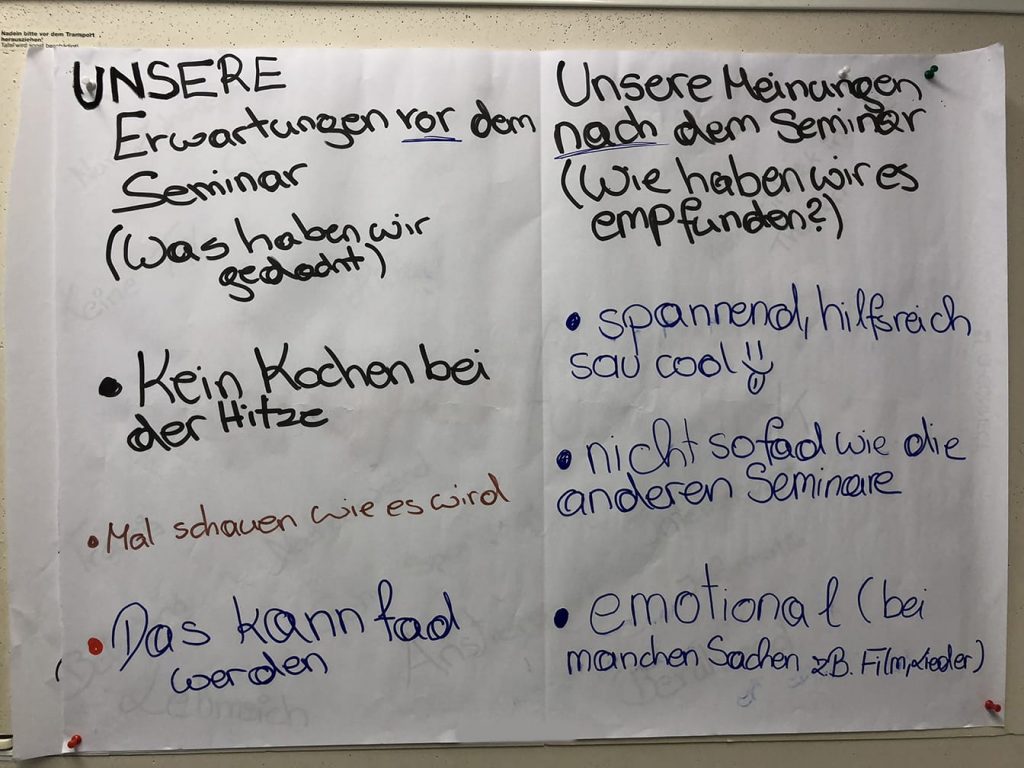 Nadeln bitte vor dem Transport
herausziehen!
Tafel wird sonst beschädigt!
UNSERE
Erwartungen vor dem
Seminar
(Was haben wir
gedacht)
• Kein Kochen bei
der Hitze
• Mal schauen wie es wird
• Das kann fad
werden
Unsere Meinungen
nach dem Seminar
(Wie haben wir es
empfunden?)
• spannend, hilfsreich
sau cool!!
• nicht so fad wie die
anderen Seminare
• emotional (bei
manchen Sachen z.B. Film, Lieder)